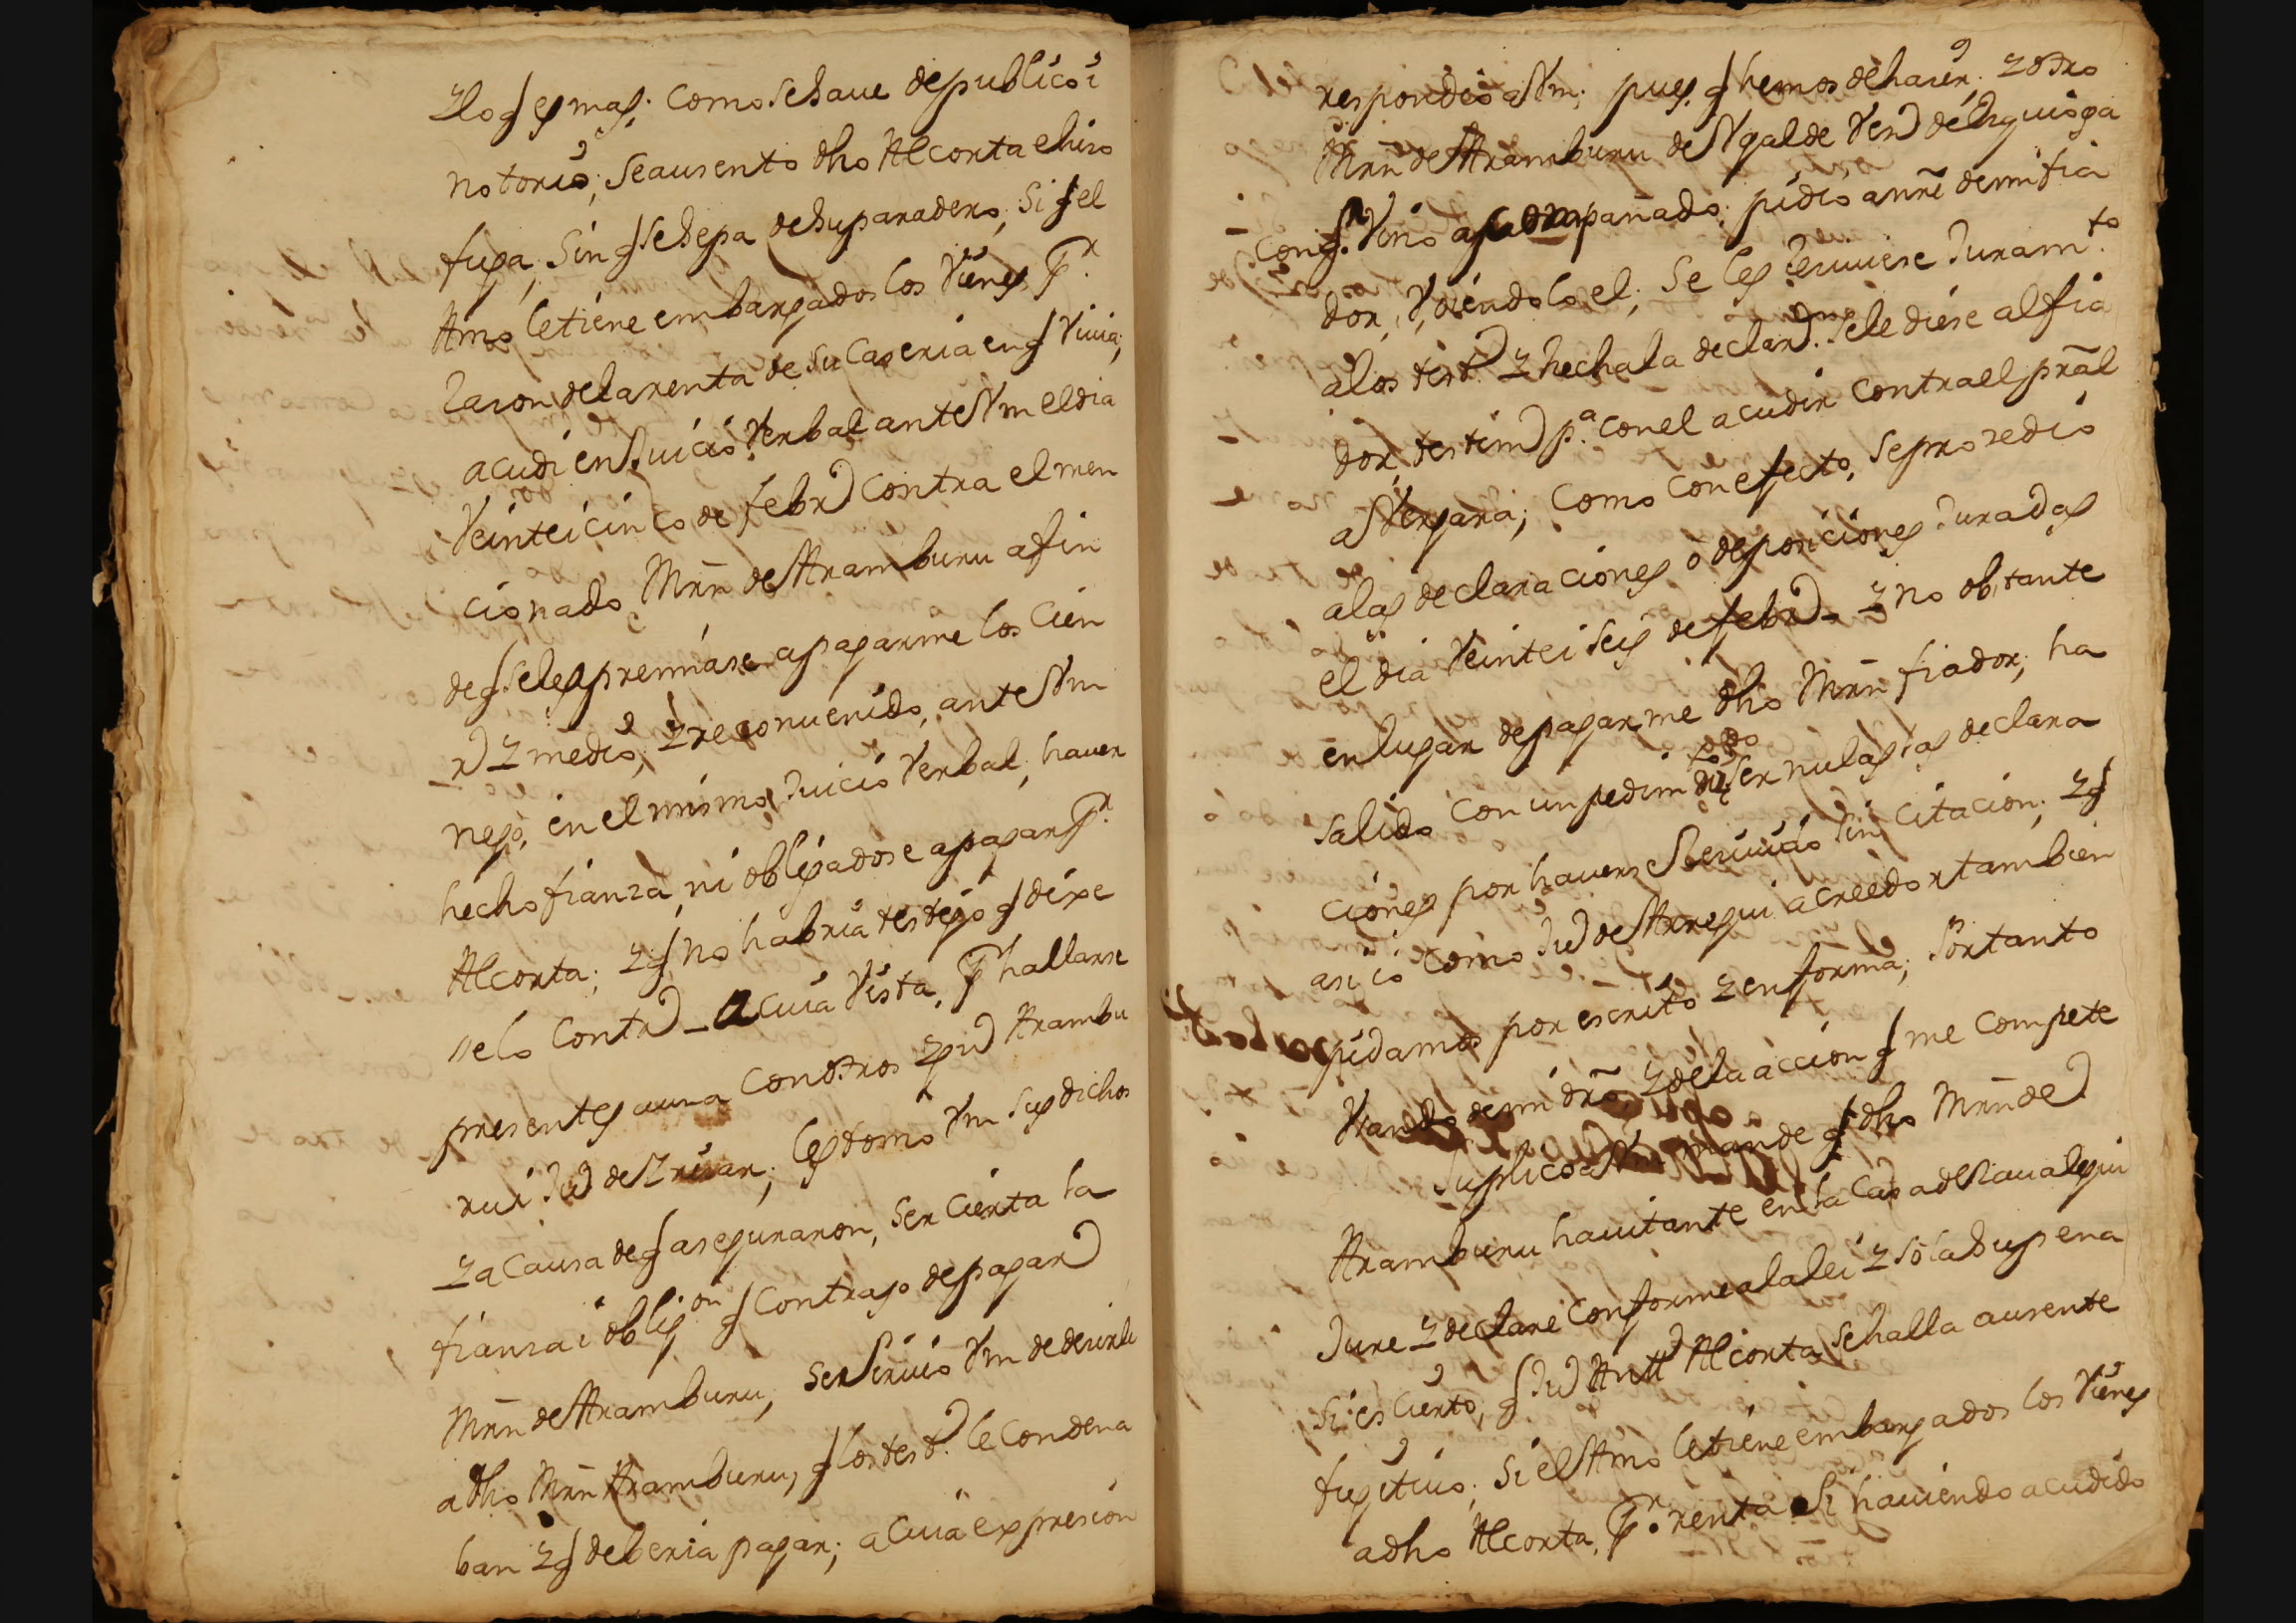 Ylo q es mas; como se save de publico i
notorio, se ausento dho Alcorta e hiso
fuga, sin q se sepa de su paradero, si q el
Amo le tiene embargados los Vienes Pr.
rason de la renta de su Caseria en q Vivia,
acudi en Juicio Verbal ante Vm el dia
Veinte i cinco de febro contra el men
cionado Mrn de Aramburu a fin
de q se le apremiase a pagarme los cien
rs y medio, y reconvenido, ante Vm
nego, en el mismo Juicio Verbal, haver
hecho fianza, ni obligadose a pagar Pr.
Alcorta; y q no habria testigo q dixe
se lo contro - a cuia Vista, Pr hallarse
presentes a una con otros Aramburu
rui Ju de Yrisar, les tomo Vm sus dichos
y a causa de q aseguraron, ser cierta la
fianza i obligon q contrajo de pagar
Mrn de Aramburu, se sirvio Vm de decirle
a dho Mrn Aramburu, q los test. le condena
ban y q deberia pagar; a cuia expresion
respondio a Vm; pues q hemos de hacer; y otro
Mrn de Aramburu de Ugalde Veno de Urquioga
con qn. Vino acompañado; pidio a nre de mi fia
dor, oiendolo el, se les reciviese Juramto.
a los test. y hecha la declaron. se le diese al fia
dor, testimo pa. con el acudir contra el pral
a Vergara; como con efecto, se procedio
a las declaraciones o deposiciones Juradas
el dia Veinte i seis de febro. y no obstante
en lugar de pagarme dho Mrn fiador, ha
salido con un pedimto de ser nulas las declara
ciones por haverse Recivido sin citacion; y q
asi io como Ju de Arregui acreedor tambien
pidamos por escrito y en forma; Portanto
Vsando de mi dro, y de la accion q me compete
Suplico a Vm mande q dho Mrn de
Aramburu havitante en la Casa de Sauategui
Jure y declare conforme a la lei y so la de su pena
Si es cierto, q Ju Antto Alcorta, se halla ausente
fugitivo; Si el Amo le tiene embargados los Vienes
a dho Alcorta, Pr. renta Si haviendo acudido